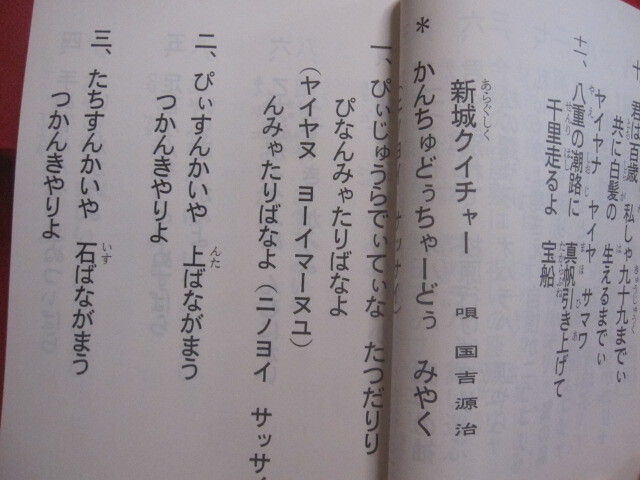 十、君は百歳 私しゃ九十九までぃ
共に白髪の 生えるまでぃ
ヤイヤナ ヤイヤ サマワ
十一、八重の潮路に 真帆引き上げて
千里走るよ 宝船
新城クイチャー 唄 国吉源治
＊ かんちゅどぅちゃーどぅ みやく
一、ぴぃじゅうらでぃてぃな たつだりり
ぴなんみゃたりばなよ
（ヤイヤヌ ヨーイマーヌユ）
んみゃたりばなよ（ニノヨイ サッサイ
二、ぴぃすんかいや 上ばながまう
つかんきやりよ
三、たちすんかいや 石ばながまう
つかんきやりよ